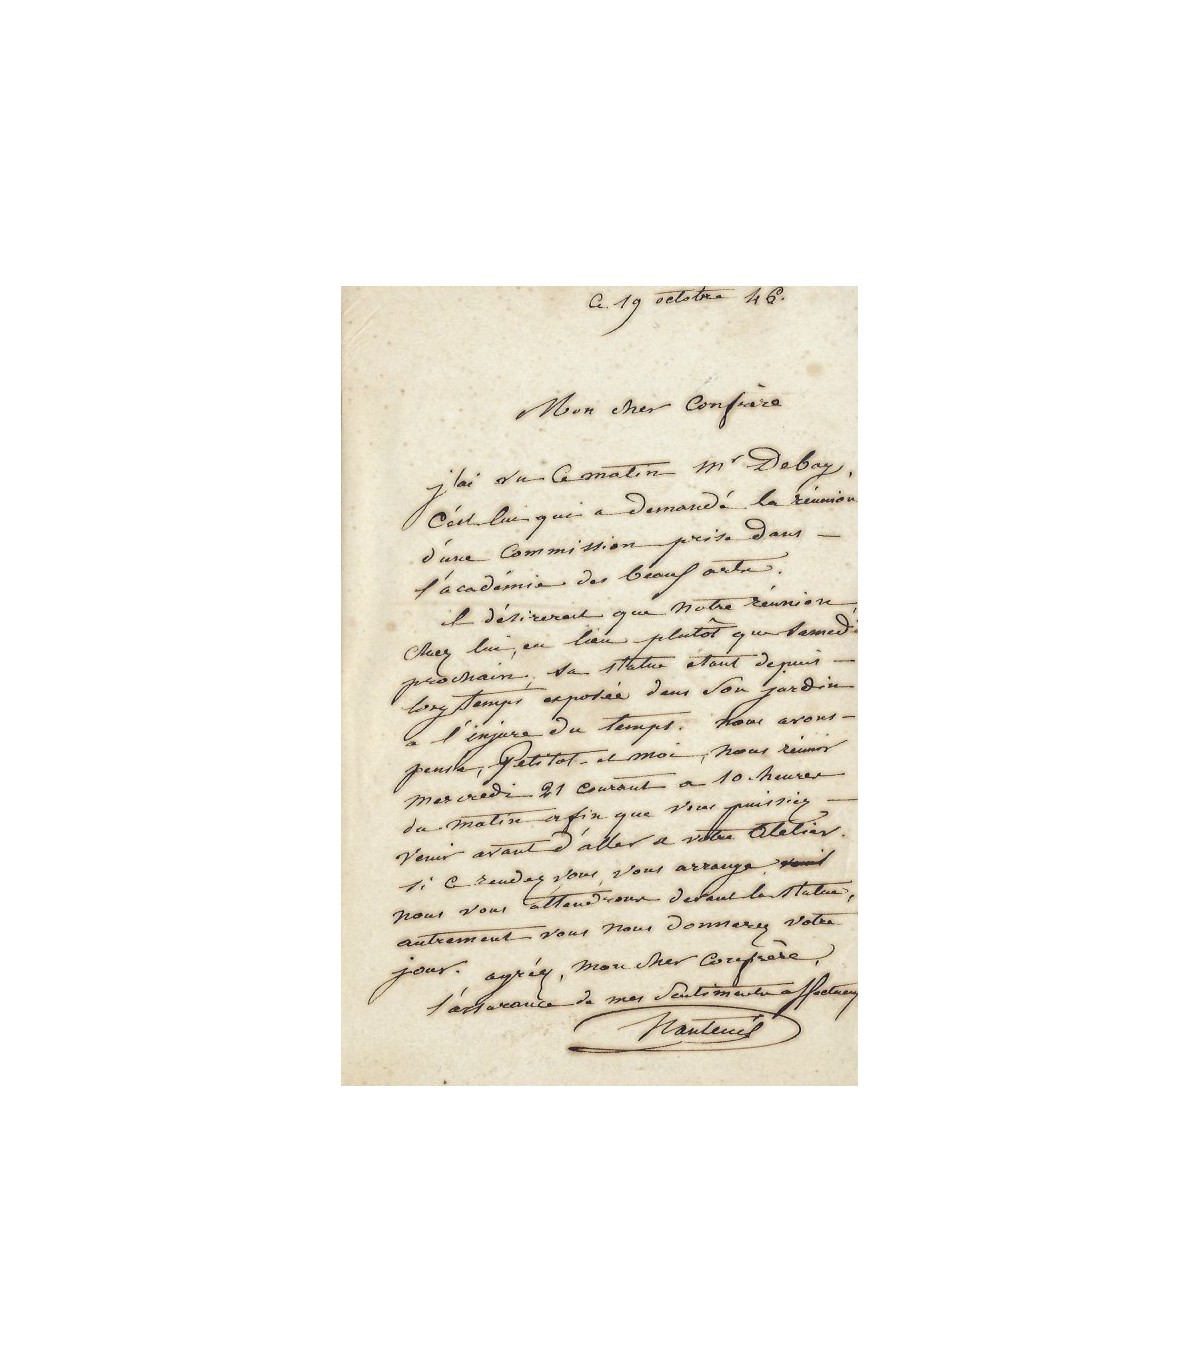 Ce 19 octobre 46.
Mon cher Confrère
j'ai vu ce matin Mr Debay,
C'est lui qui a demandé la réunion
d'une Commission prise dans —
l'académie des beaux arts.
il désirerait que notre réunion,
chez lui, eu lieu plutôt que Samedi
prochain, sa statue étant depuis —
long temps exposée dans son jardin
a l'injure du temps. nous avons —
pensé, Petitot et moi, nous réunir
mercredi 21 courant a 10 heures
du matin afin que vous puissiez —
venir avant d'aller a votre atelier.
si ce rendez vous, vous arrange
nous vous attendrons devant la statue,
autrement vous nous donnerez votre
jour. agréez, mon cher Confrère,
l'assurance de mes sentiments affectueux
Nanteuil